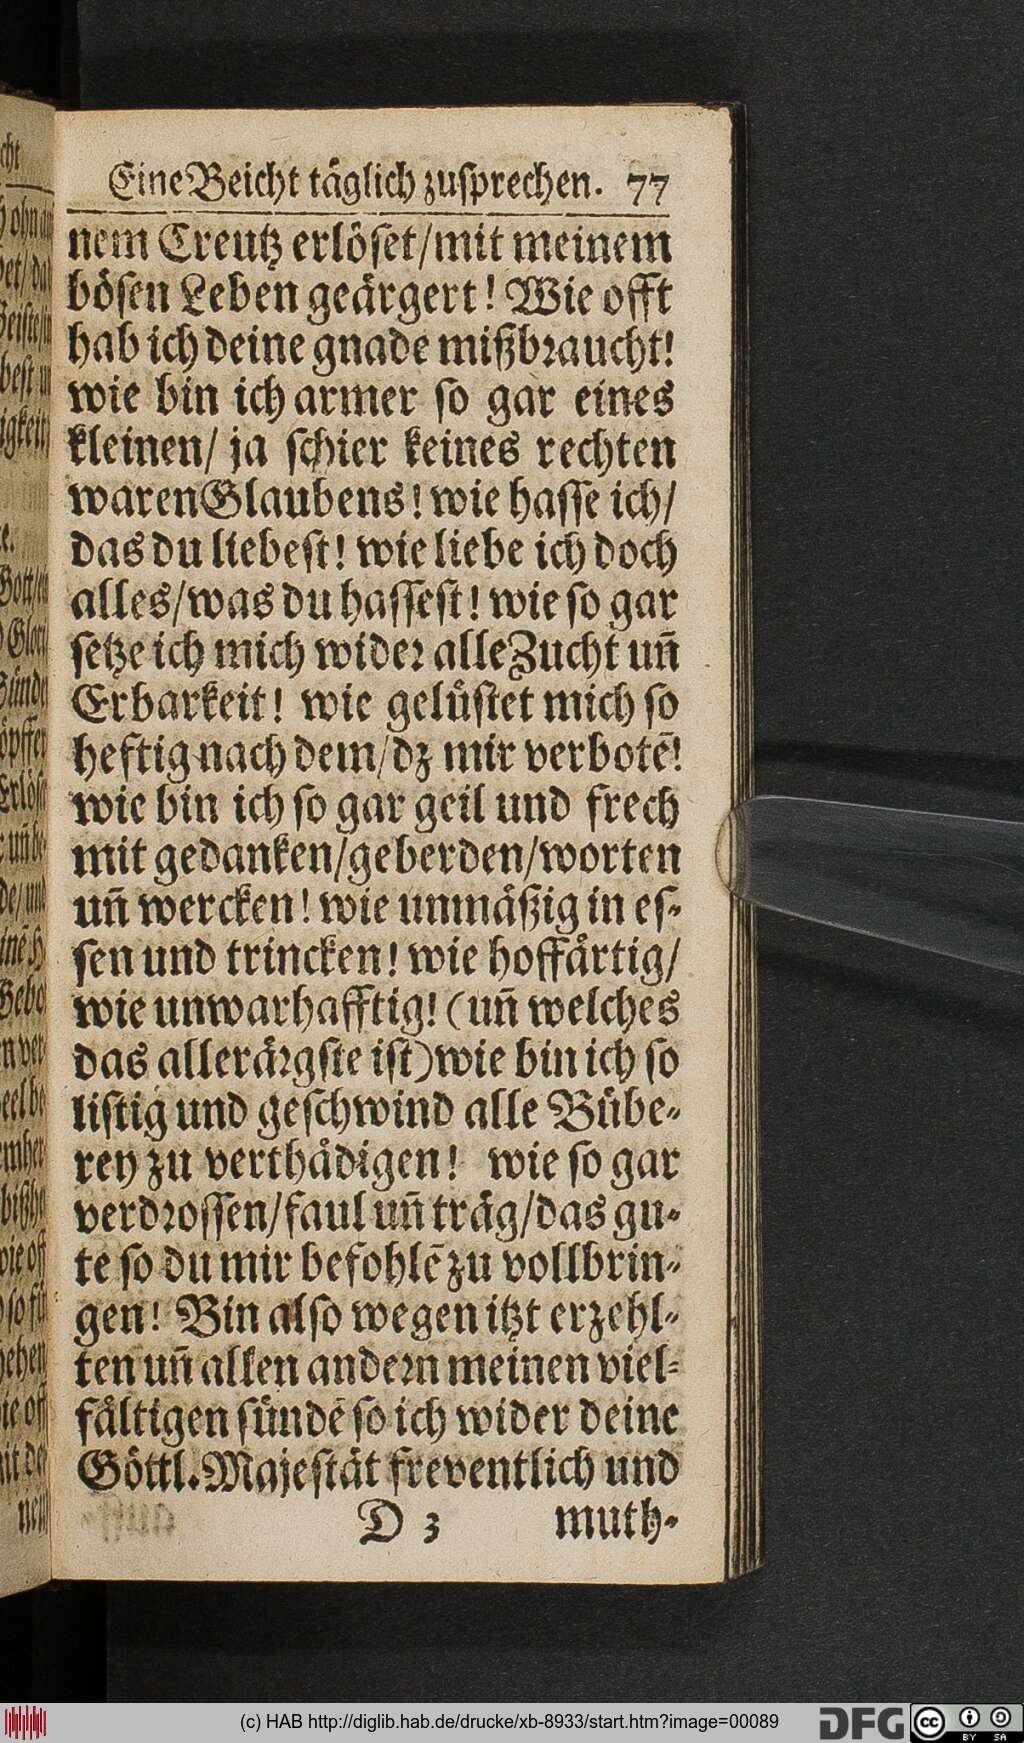 Eine Beicht täglich zusprechen. 77
nem Creutz erlöset/mit meinem
bösen Leben geärgert! Wie offt
hab ich deine gnade mißbraucht!
wie bin ich armer so gar eines
kleinen/ ja schier keines rechten
waren Glaubens! wie hasse ich/
das du liebest! wie liebe ich doch
alles/was du hassest! wie so gar
setze ich mich wider alle Zucht uñ
Erbarkeit! wie gelüstet mich so
heftig nach dem/dz mir verbotē!
wie bin ich so gar geil und frech
mit gedanken/geberden/worten
uñ wercken! wie unmäßig in es-
sen und trincken! wie hoffärtig/
wie unwarhafftig! (uñ welches
das allerärgste ist) wie bin ich so
listig und geschwind alle Bübe-
rey zu verthädigen! wie so gar
verdrossen/faul uñ träg/das gu-
te so du mir befohlē zu vollbrin-
gen! Bin also wegen itzt erzehl-
ten uñ allen andern meinen viel-
fältigen sündē so ich wider deine
Göttl. Majestät freventlich und
D 3 muth-
(c) HAB http://diglib.hab.de/drucke/xb-8933/start.htm?image=00089
DFG cc BY SA